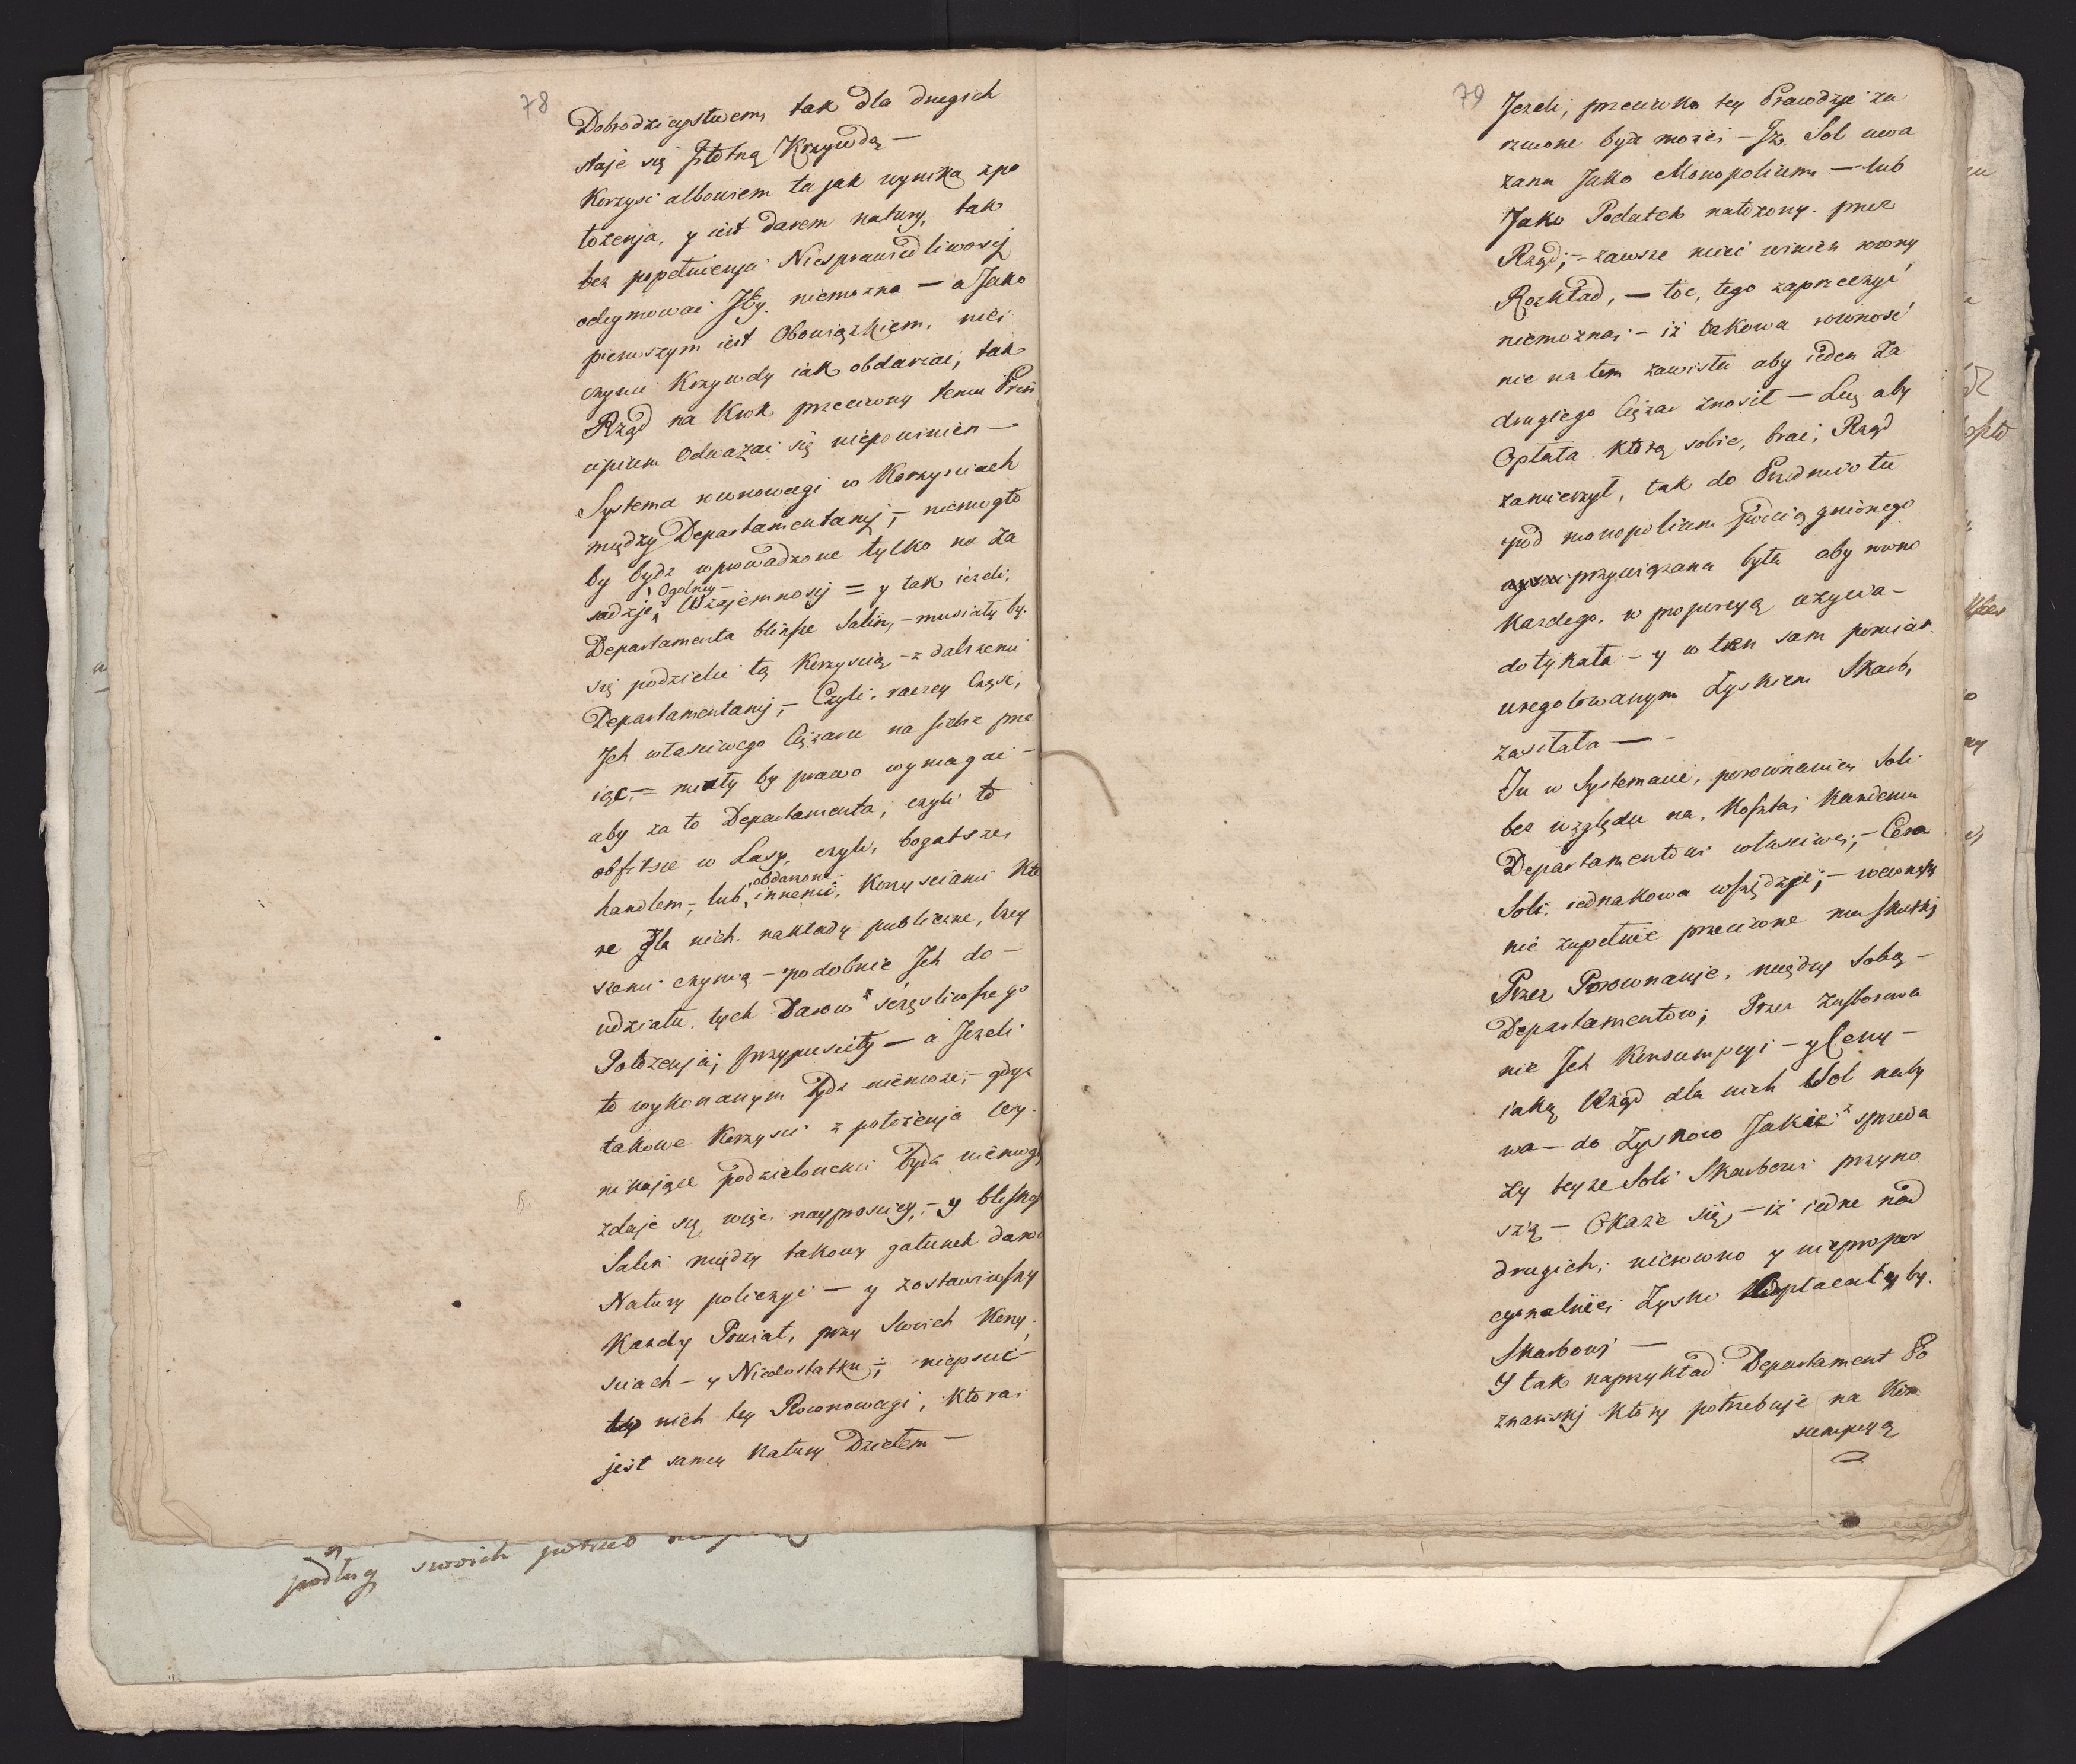 78
Dobrodzieystwem, tak dla drugich
staje się Jstotną Krzywdą —
Korzysc albowiem ta jak wynika zpo
łozenja, y iest darem natury, tak
bez popełnienja Niesprawiedliwosci
odeymowac Jey niemozna — a Jako
pierwszym iest Obowiązkiem, nie
czynic Krzywdy iak obdarzac, tak
Rząd na Krok przeciwny temu Prin
cipium Odwazac się niepowinien —
Systema rownowagi w Korzysciach
między Departamentamj, — niemogło
by bydz wprowadzone tylko na Za
sadzje Ogolney Wzajemnosci = y tak iezeli,
Departamenta bliższe Salin, — musiały by
się podzielic tą Korzyscią — z dalszemi
Departamentamj, — Czyli, raczey Częsc,
Jch własciwego Ciężaru na siebie prze
iąc, = miały by prawo wymagac —
aby za to Departamenta, czyli to
obfitsze w Lasy, czyli, bogatsze,
handlem, — lub obdarzone innemi, Korzysciami Kto
re dla nich nakłady publiczne, lzey
szemi czynią — podobnie Jch do —
udziału, tych Darow z sczęsliwszego
Połozenja, przypusciły — a Jezeli
to wykonanym bydz niemoze, — gdyz
takowe Korzysci z połozenja wy
nikające podzielonemi bydz niemogą
zdaje się więc nayprosciey, — y bliskosc
Salin między takowy gatunek darow
Natury policzyc — y zostawiwszy
Kazdy Powiat, przy Swoich Korzy
sciach — y Niedostatku, — niepsuc
w nich tey Rownowagi, ktora,
jest samey Natury Dziełem —
podług swoich potrzeb
79
Jezeli, przeciwko tey Prawdzie za
rzucone bydz moze, — Jz Sol uwa
zana Jako Monopolium — lub
Jako Podatek nałozony przez
Rząd, — zawsze miec winien rowny
Rozkład, — toc, tego zaprzeczyc
niemozna, — iz takowa rownosc
nie na tem zawisła aby ieden Za
drugiego Cięzar znosił — Lecz aby
Opłata którą sobie, brac, Rząd
zamierzył, tak do Przedmiotu
pod monopolium pociągnionego
przywiązana była aby rowno
Kazdego, w proporcyą uzywa —
dotykała — y w ten sam pomiar
uregolowanym Zyskiem Skarb,
zasilała —
Tu w Systemacie, porownaniey Soli
bez względu na, Koszta, Kazdemu
Departamentowi własciwe, — Cena
Soli, iednakowa wszędzje, — wewnętrz
nie zupełnie przeciwne ma skutkj
Przez Porownanje, między Sobą —
Departamentow, Przez Zastosowa
nie Jch Konsumpcyi — y Ceny —
iaką Rząd dla nich Sol naby
wa — do Zyskow Jakie z sprzeda
zy teyze Soli Skarbowi przyno
szą — Okaze się — iz iedne nad
drugich, nierowno y niepropor
cyonalnie, Zyski opłacały by
Skarbowj —
Y tak naprzykład Departament Po
znanskj ktory potrzebuje na Kon
sumpcyą